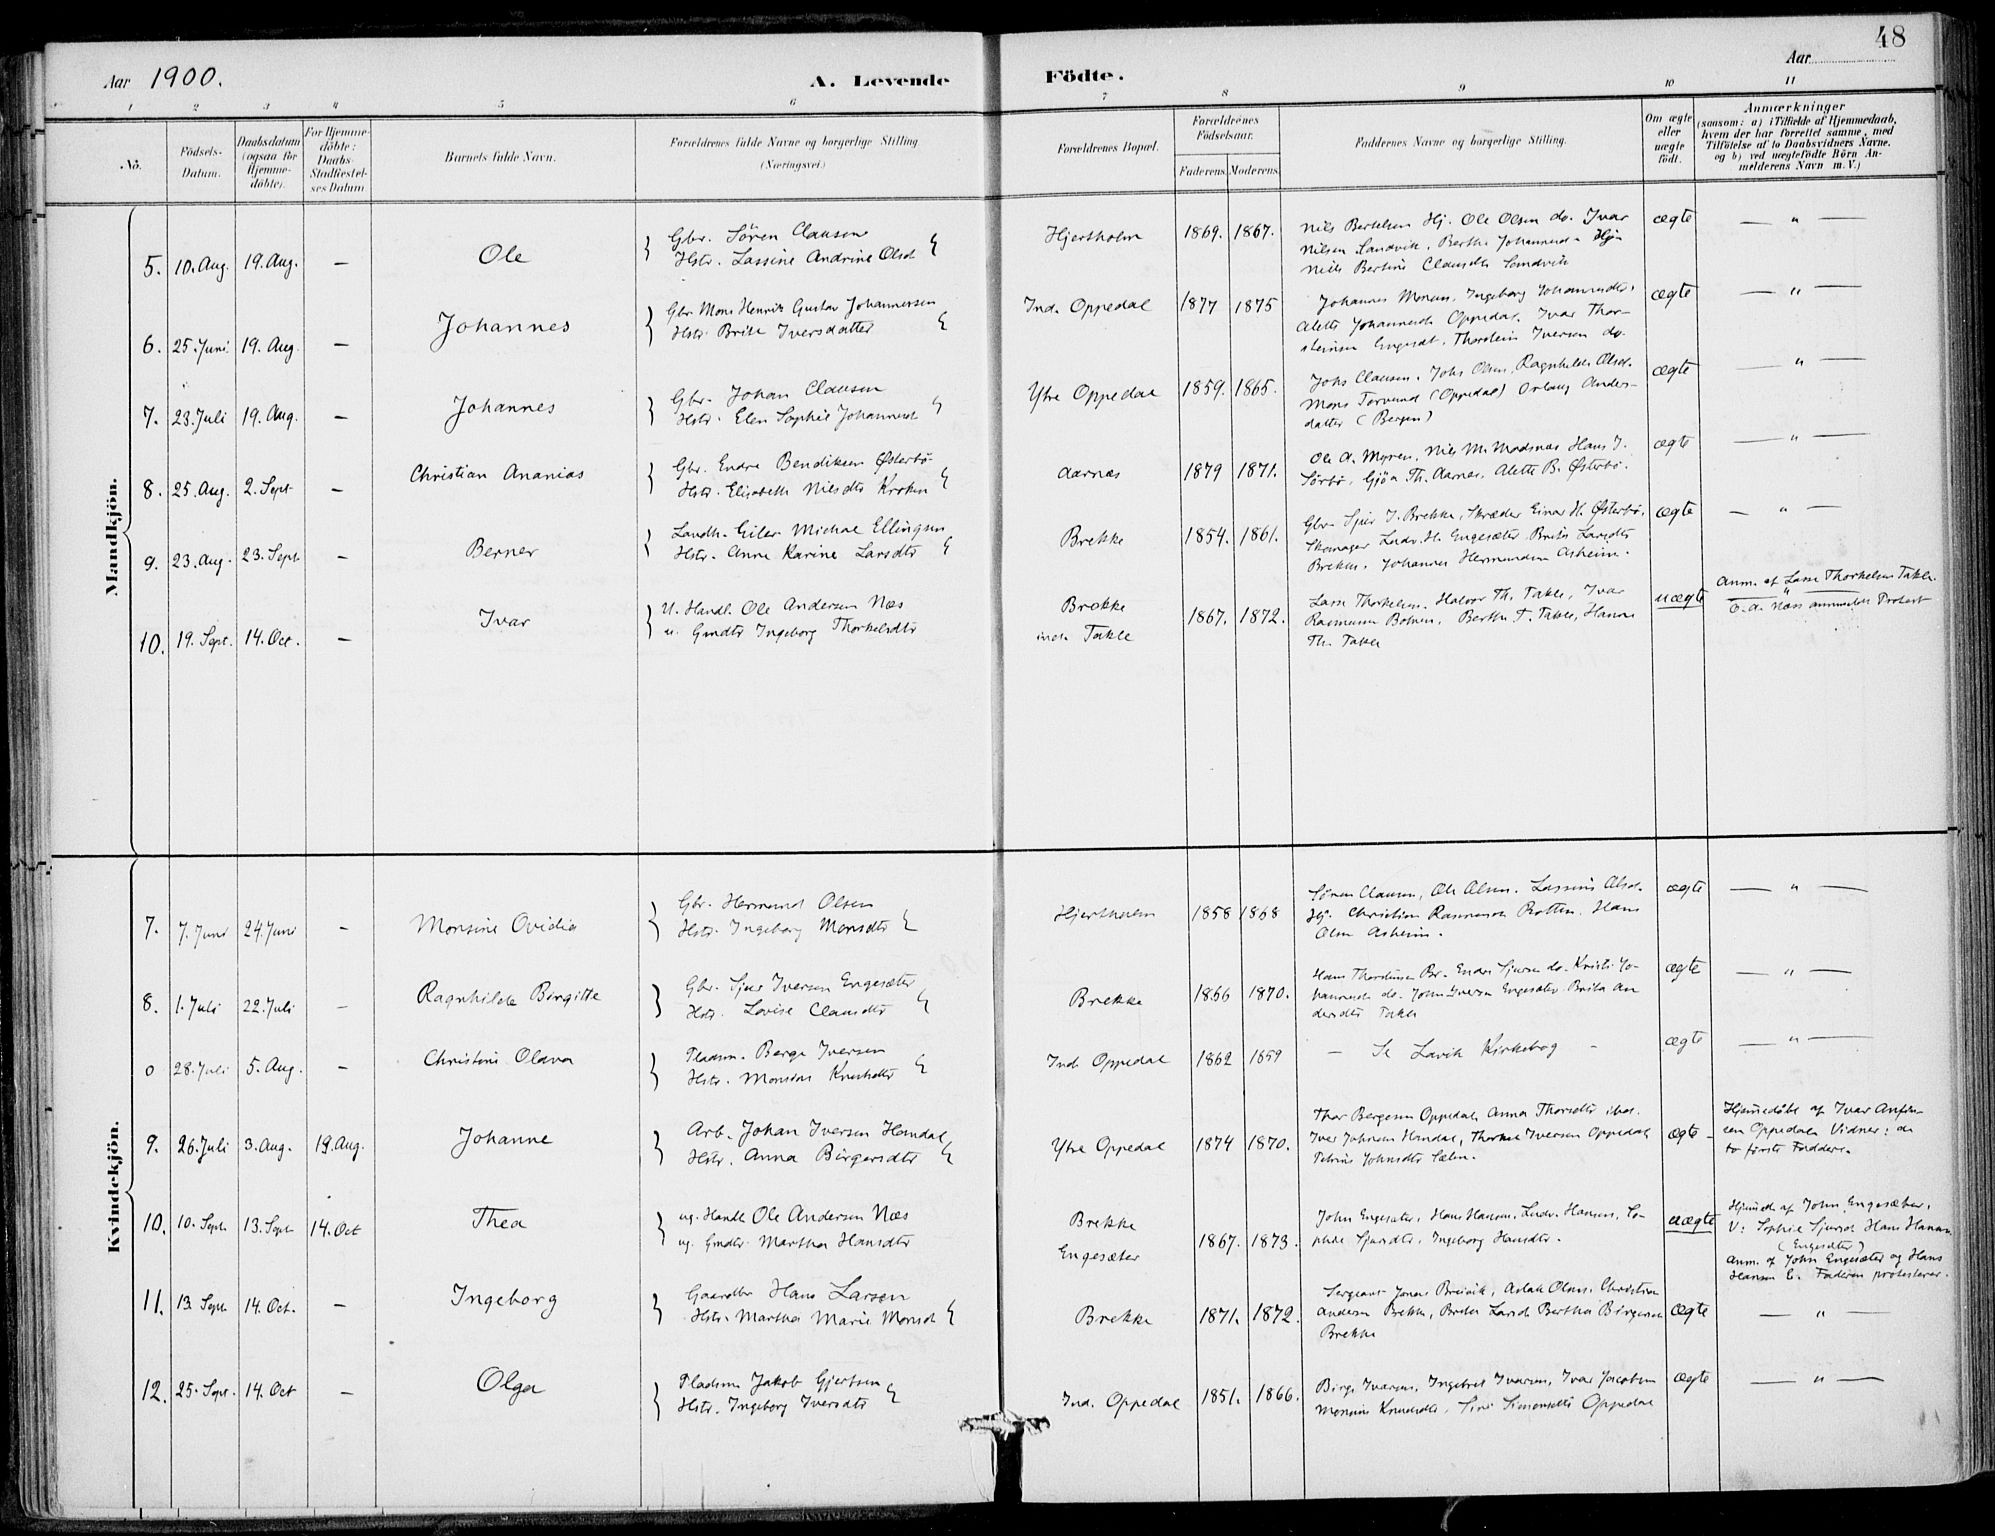 48
Aar 1900.
A. Levende Födte.
Aar
1 2 3 4 5 6 7 8 9 10 11
No.
Födsels-Datum.
Daabsdatum (ogsaa for Hjemme-döbte).
For Hjemme-döbte: Daabs-Stadfæstel-ses Datum
Barnets fulde Navn.
Forældrenes fulde Navne og borgerlige Stilling (Næringsvei.)
Forældrenes Bopæl.
Forældrenes Födselsaar.
Faderens. Moderens.
Faddernes Navne og borgerlige Stilling.
Om ægte eller uægte födt.
Anmærkninger
(saasom: a) i Tilfælde af Hjemmedaab,
hvem der har forrettet samme, med
Tilföielse af to Daabsvidners Navne.
og b) ved uægtefödte Börn An-
melderens Navn m. V.)
Mandkjön.
5. 10. Aug. 19. Aug. — Ole
Gbr. Sören Clausen
Hstr. Lassine Andrine Olsd
Hjertholm 1869. 1867.
Nils Bertelsen Hj. Ole Olsen do. Ivar
Nilsen Sandvik, Berthe Johannesd. Hj.
Nils Bertins Clausdtr Sandvik
ægte — " —
6. 25. Juni 19. Aug. — Johannes
Gbr. Mons Henrik Gustav Johannessen
Hstr. Brite Iversdatter
Ind. Oppedal 1877 1875
Johannes Monsen, Ingeborg Johannesdtr,
Alette Johannesd. Oppedal, Ivar Thor-
steinsen Engesæt. Thorstein Iversen do.
ægte — " —
7. 23. Juli 19. Aug. — Johannes
Gbr. Johan Clausen
Hstr. Elen Sophie Johannesd
Ytre Oppedal 1859. 1865.
Johs Clausen, Johs Olsen, Ragnhilde Olsd.
Mons Torvund (Oppedal) Orlaug Anders-
datter (Bergen)
ægte " —
8. 25. Aug. 2. Sept. — Christian Ananias
Gbr. Endre Bendiksen Østerbö
Hstr. Elisabeth Nilsdtr Kroken
Aarnæs 1879 1871.
Ole A. Myren, Nils M. Madsnæs Hans J.
Sörbö, Gjöa Th. Aarnæs, Alette B. Østerbö.
ægte — " —
9. 23. Aug. 23. Sept. — Berner
Landh. Eiler Michal Ellingsen
Hstr. Anne Karine Larsdtr
Brekke 1854. 1861.
Gbr. Sjur I. Brekke, Skræder Einar H. Østerbö,
Skomager Ludv. H. Engesæter Brite Larsdtr
Brekke. Johannes Hermundsen Asheim.
ægte — " —
10. 19. Sept. 14. Oct. — Ivar
U. Handl. Ole Andersen Næs
u. Gmdtr Ingeborg Thorkelsdtr
Brekke
ind. Takle
1867. 1872.
Lasse Thorkelsen, Halvor Th. Takle, Ivar
Rasmussen Botnen, Berthe T. Takle, Hanna
Th. Takle
uægte
Anm. af Lasse Thorkelsen Takle.
O. A. Næss anmelder Protest
Kvindekjön.
7. 7. Juni 24. Juni — Monsine Ovidia
Gbr. Hermund Olsen
Hstr. Ingeborg Monsdtr
Hjertholm 1858 1868
Sören Clausen, Ole Olsen. Lassine Olsd.
Hj. Christine Rasmusd. Botten. Hans
Olsen Asheim.
ægte — " —
8. 1. Juli 22. Juli — Ragnhilde Birgitte
Gbr. Sjur Iversen Engesæter
Hstr. Lovise Clausdtr
Brekke 1866 1870.
Hans Thordersen Br. Endre Sjursen do. Kristi Jo-
hannesd. do. John Iversen Engesæter. Brita An
dersdtr Takle
ægte — " —
0 28. Juli 5. Aug. — Christine Olava
Pladsm. Berge Iversen
Hstr. Monsine Knutsdtr
Ind. Oppedal 1862 1859
— Se Lavik Kirkebog —
ægte — " —
9. 26. Juli 3. Aug. 19. Aug. Johanne
Arb. Johan Iversen Hamdal
Hstr. Anna Birgersdtr
Ytre Oppedal 1874 1870.
Thor Bergesen Oppedal, Anna Thorsdtr ibid.
Iver Johnsen Hamdal, Thorkel Iversen Oppedal
Petrine Johnsdtr Sæln.
ægte —
Hjemmedöbt af Ivar Anfin-
sen Oppedal. Vidner: de
to förste Faddere.
10. 10. Sept. 13. Sept. 14. Oct Thea
ug. Handl. Ole Andersen Næs
ug. Gmdtr. Martha Hansdtr
Brekke
Engesæter
1867. 1873.
John Engesæter, Hans Hansen, Ludv. Hansen, So-
phie Sjursdtr, Ingeborg Hansdtr.
uægte
Hjemmed. af John Engesæter,
V: Sophie Sjursd. Hans Hansen.
(Engesæter)
Anm. af John Engesæter og Hans
Hansen E. Faderen protesterer.
11. 13. Sept. 14. Oct. — Ingeborg
Gaardbr Hans Larsen
Hstr. Martha Marie Monsd
Brekke 1871. 1872.
Sergeant Jonas Breivik, Aslak Olsen. Christian
Andersen Brekke, Brite Larsd. Bertha Birgersen
Brekke
ægte — " —
12. 25. Sept. 14. Oct — Olga
Pladsm. Jakob Gjertsen
Hstr. Ingeborg Iversdtr
Ind. Oppedal 1851. 1866.
Birge Ivarsen, Ingebret Ivarsen, Ivar Jacobsen
Monsine Knudsdtr, Siri Simonsdtr Oppedal
ægte — " —